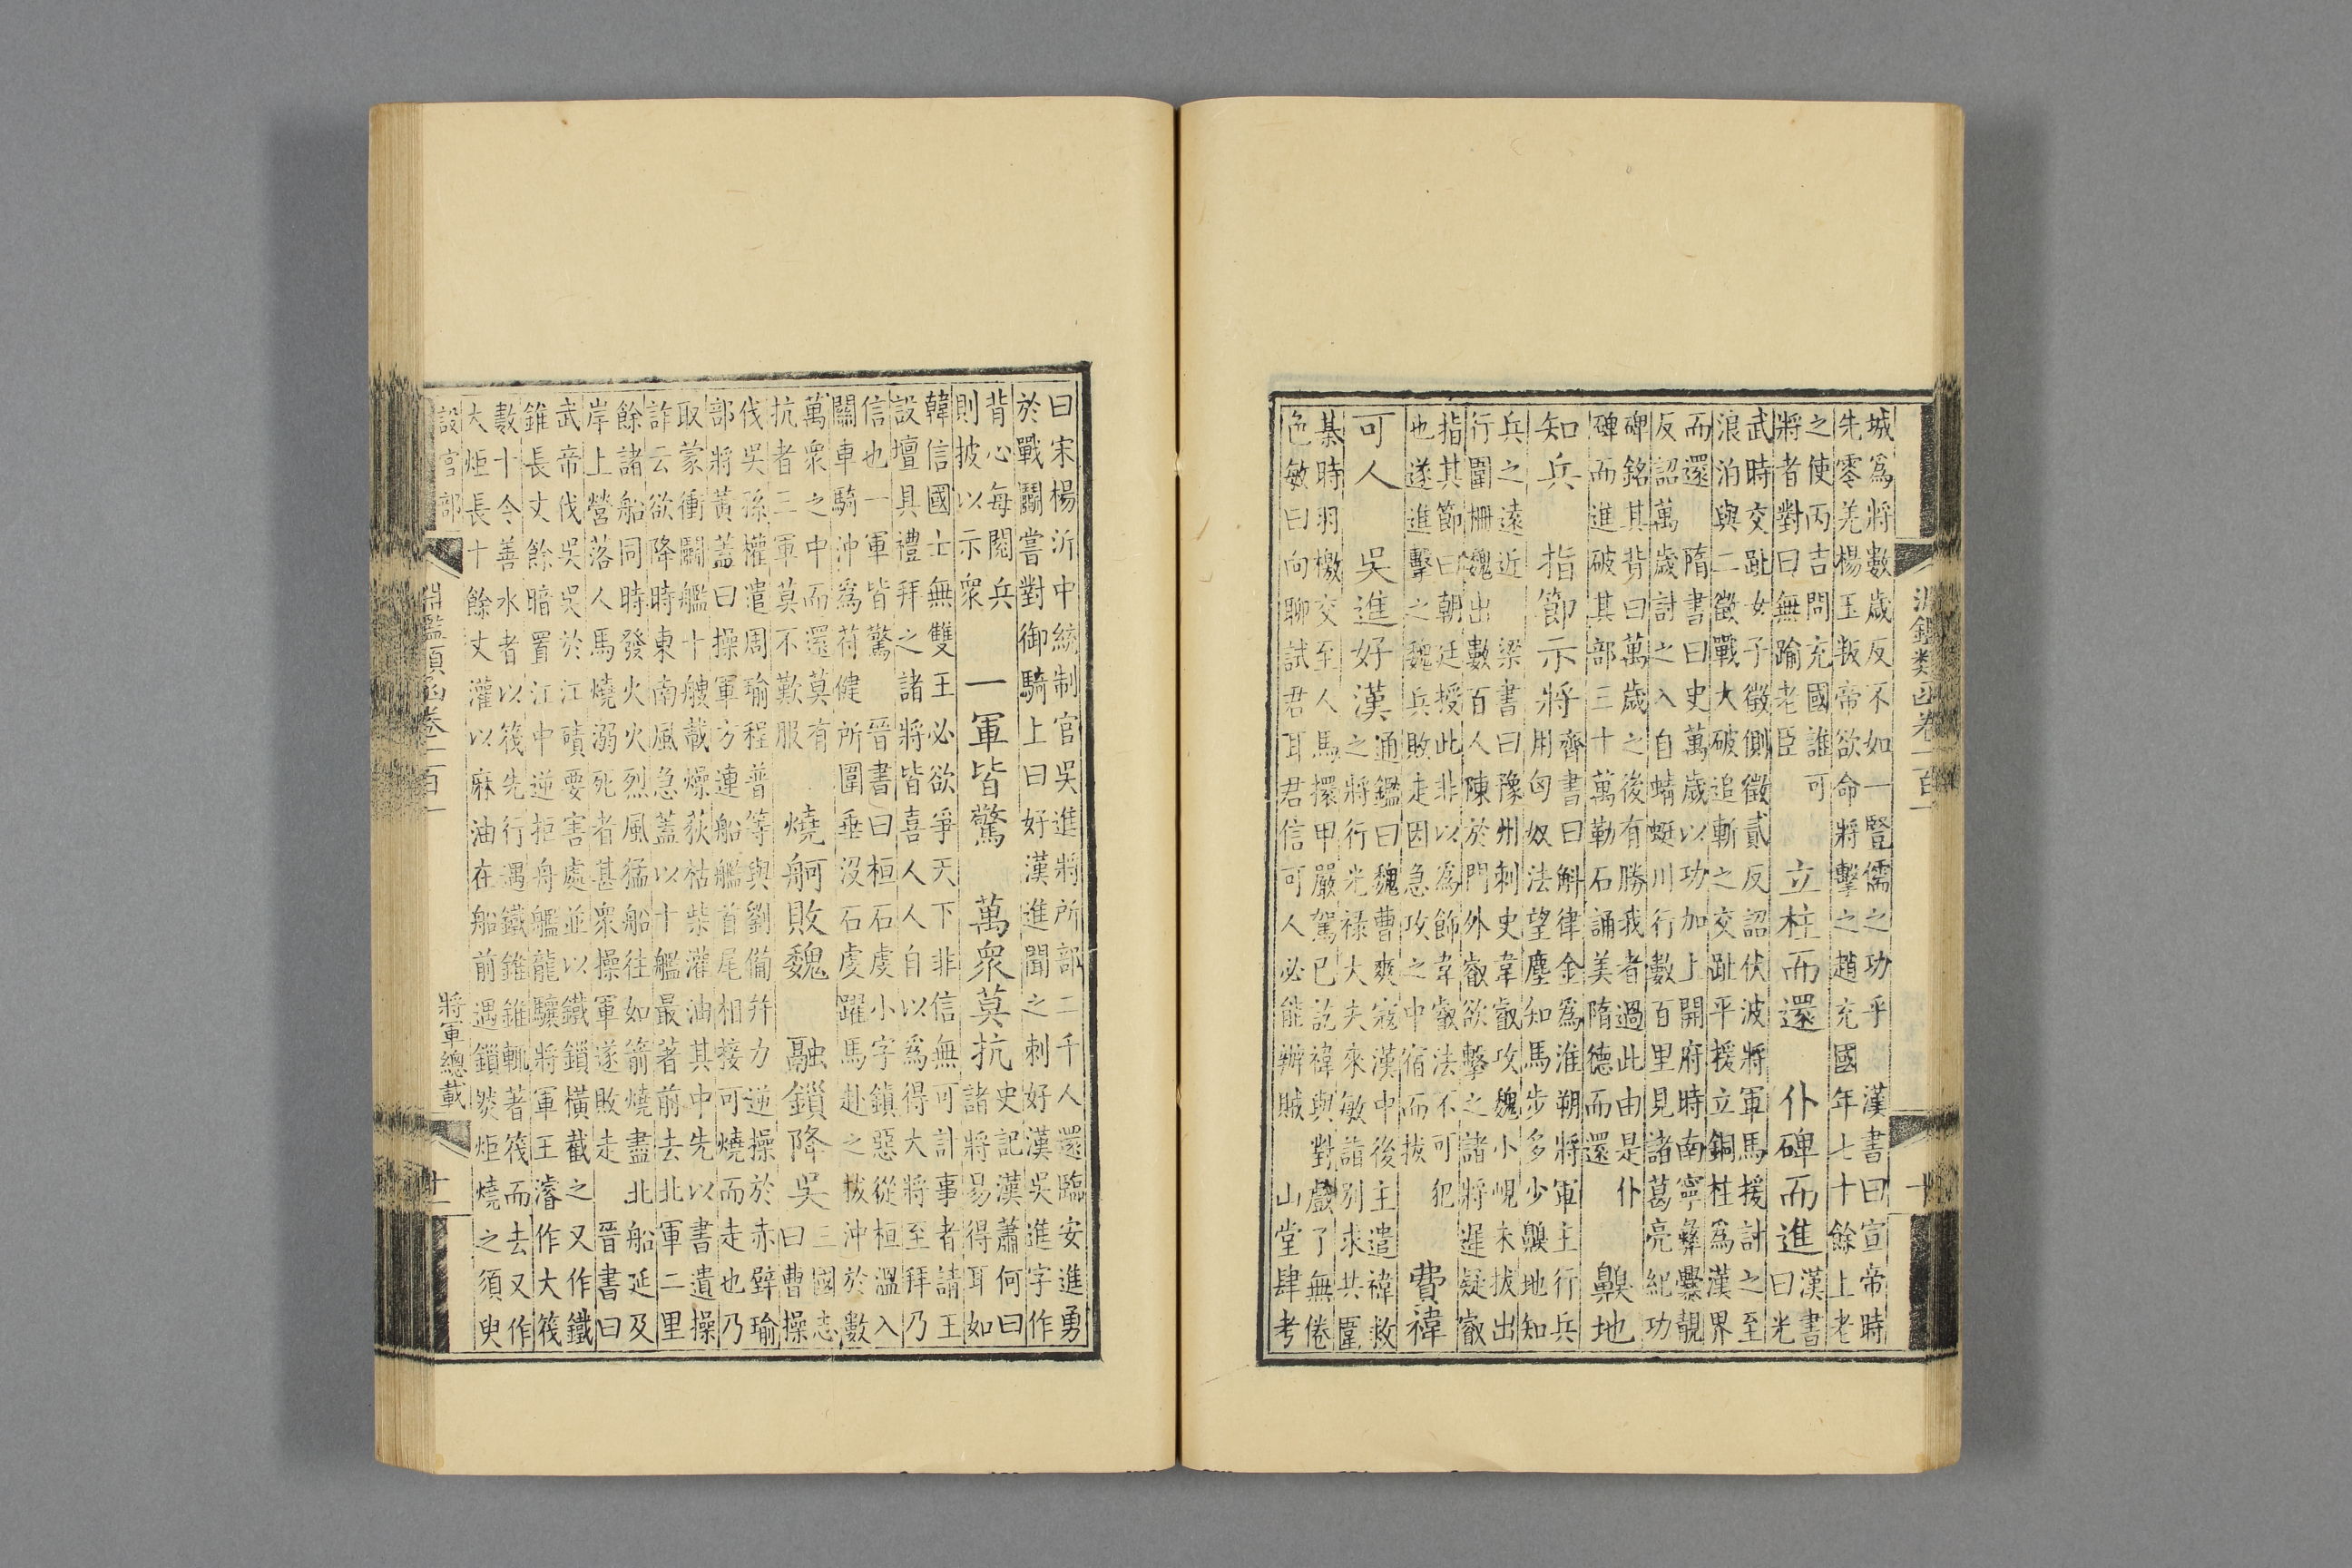 淵鑑類函卷一百一
十
城爲將數歲反不如一豎儒之功乎 漢書曰宣帝時
先零羌楊玉叛帝欲命將擊之趙充國年七十餘上老
之使丙吉問充國誰可
將者對曰無踰老臣
立柱而還 仆碑而進
漢書
曰光
武時交趾女子徵側徵貳反詔伏波將軍馬援討之至
浪泊與二徵戰大破追斬之交趾平援立銅柱爲漢界
而還 隋書曰史萬歲以功加上開府時南寧彝爨靚
反詔萬歲討之入自蜻蜓川行數百里見諸葛亮紀功
碑銘其背曰萬歲之後有勝我者過此由是仆
碑而進破其部三十萬勒石誦美隋德而還
齅地
知兵 指節示將
齊書曰斛律金爲淮朔將軍主行兵
用匈奴法望塵知馬步多少齅地知
兵之遠近 梁書曰豫州刺史韋叡攻魏小峴未拔出
行圍柵魏出數百人陳於門外叡欲擊之諸將遲疑叡
指其節曰朝廷授此非以爲飾韋叡法不可犯
也遂進擊之魏兵敗走因急攻之中宿而拔
費禕
可人 吳進好漢
通鑑曰魏曹爽寇漢中後主遣禕救
之將行光禄大夫來敏詣別求共圍
棊時羽檄交至人馬擐甲嚴駕已訖禕與對戲了無倦
色敏曰向聊試君耳君信可人必能辦賊 山堂肆考
曰宋楊沂中統制官吳進將所部二千人還臨安進勇
於戰鬭嘗對御騎上曰好漢進聞之刺好漢吳進字作
背心每閱兵
則披以示衆
一軍皆驚 萬衆莫抗
史記漢蕭何曰
諸將易得耳如
韓信國士無雙王必欲爭天下非信無可計事者請王
設壇具禮拜之諸將皆喜人人自以爲得大將至拜乃
信也一軍皆驚 晉書曰桓石虔小字鎮惡從桓溫入
關車騎沖爲苻健所圍垂沒石虔躍馬赴之拔沖於數
萬衆之中而還莫有
抗者三軍莫不歎服
燒舸敗魏 融鎖降吳
三國志
曰曹操
伐吳孫權遣周瑜程普等與劉備并力逆操於赤壁瑜
部將黃蓋曰操軍方連船艦首尾相接可燒而走也乃
取蒙衝鬭艦十艘載燥荻枯柴灌油其中先以書遺操
詐云欲降時東南風急蓋以十艦最著前去北軍二里
餘諸船同時發火火烈風猛船往如箭燒盡北船延及
岸上營落人馬燒溺死者甚衆操軍遂敗走 晉書曰
武帝伐吳吳於江磧要害處並以鐵鎖橫截之又作鐵
錐長丈餘暗置江中逆拒舟艦龍驤將軍王濬作大筏
數十令善水者以筏先行遇鐵錐錐輒著筏而去又作
大炬長十餘丈灌以麻油在船前遇鎖燃炬燒之須臾
設官部
淵鑑類函卷一百一
將軍總載
十一